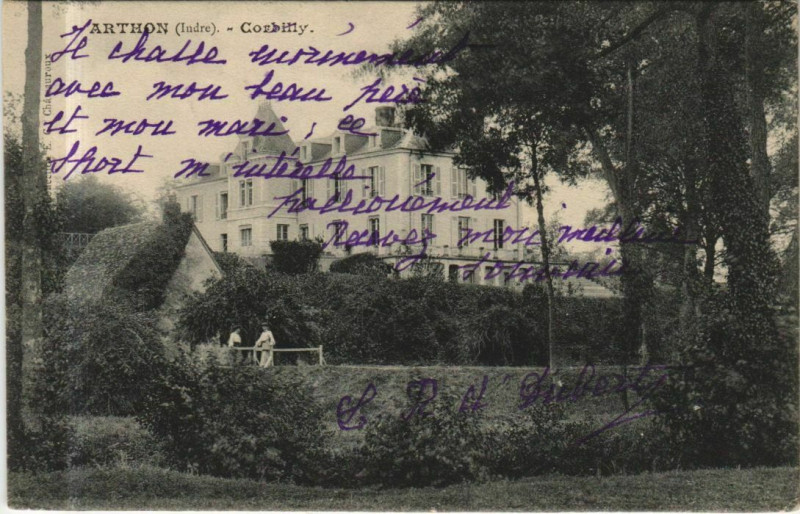 ARTHON (Indre). - Corbilly.
Je chasse énormément
avec mon beau père
et mon mari ; ce
Sport m'intéresse
passionnément
Recevez mon meilleur
souvenir
d'Hubert